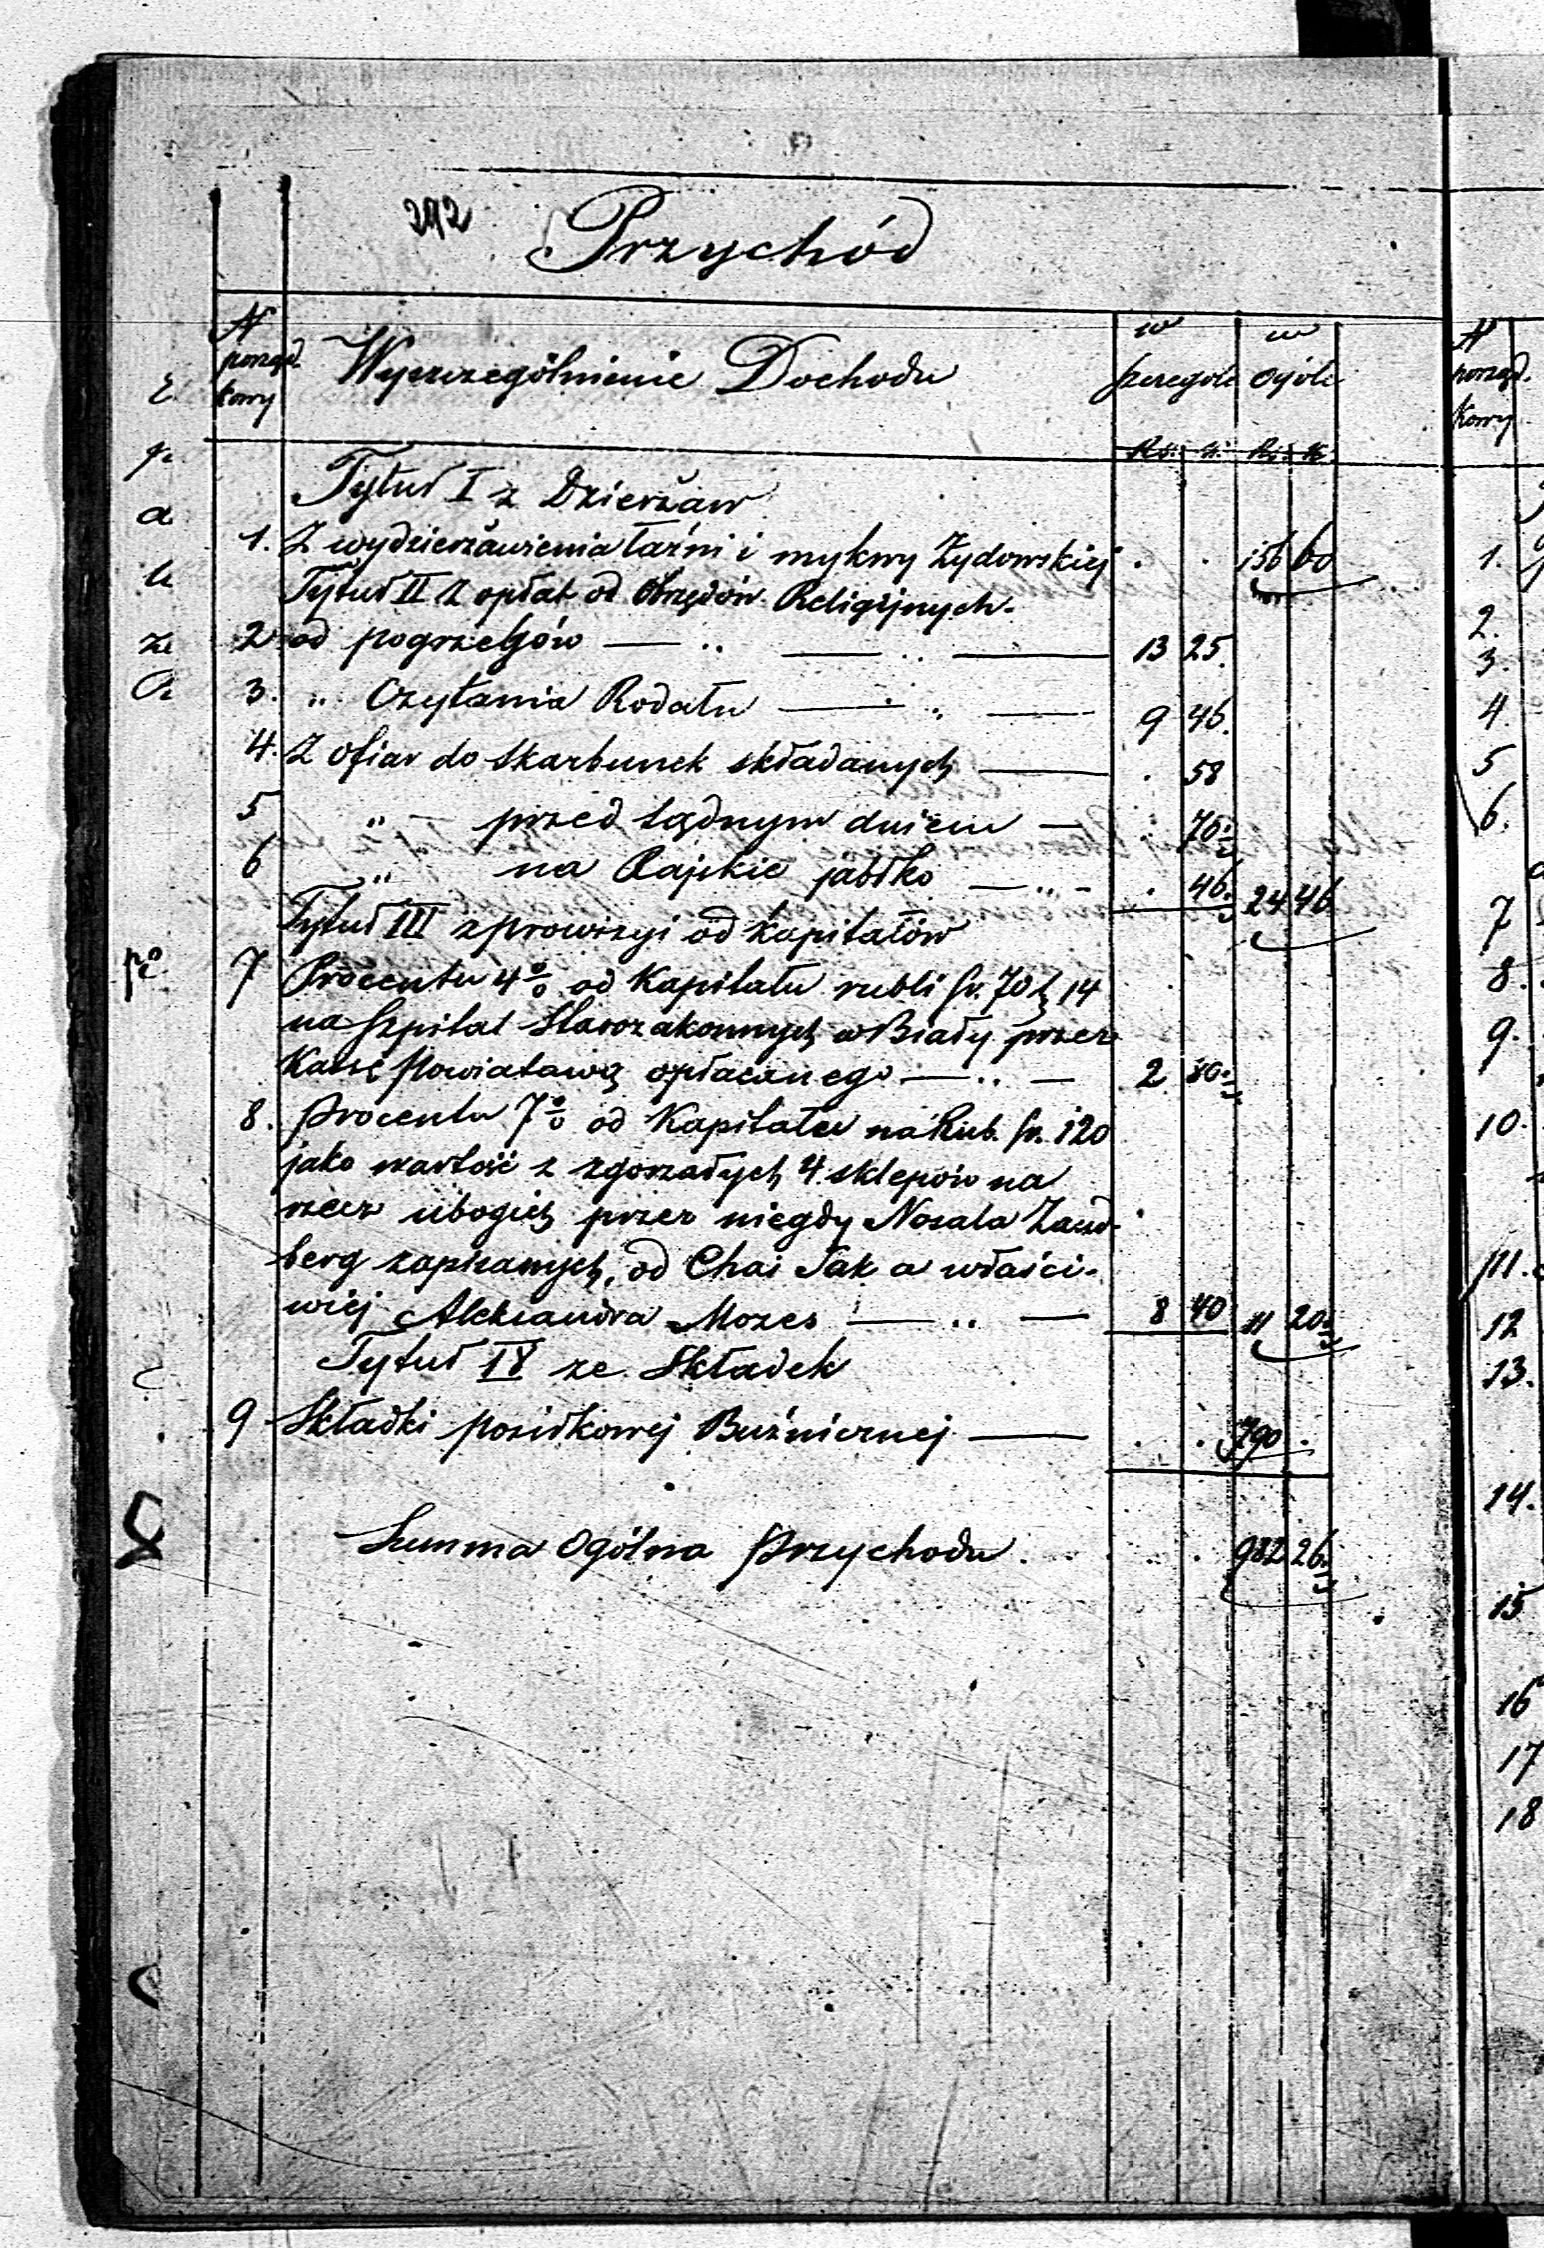 292
Przychód
N porząd kowy Wyszczególnienie Dochodu w szczególe w ogóle
Rs. k. Rs. k.
Tytuł I z Dzierżaw
1. Z wydzierżawienia łaźni i mykwy Żydowskiej . . 156 60
Tytuł II z opłat od Obrzędów Religijnych.
2 od pogrzebów — „ — „ — 13 25.
3. „ Czytania Rodału — „ — 9 46.
4. Z ofiar do skarbonek składanych — . 58
5 „ — przed sądnym dniem — . 70
6 „ na Rajskie jabłko — „ - . 46 24 46
Tytuł III z prowizyi od kapitałów
7 Procentu 4% od Kapitału rubli sr. 70 k 14
na Szpital Starozakonnych w Biały przez
Kassę Powiatową opłacanego — „ — 2 80
8. Procentu 7% od Kapitału na Rub. sr. 120
jako wartość z zgorzałych 4 sklepów na
rzecz ubogich przez niegdy Nosala Zand-
berg zapisanych, od Chai Sak a właści-
wiej Aleksandra Mozes — „ — 8 40 11 20
Tytuł IV ze Składek
9 Składki posiłkowej Buźnicznej — . . 790 .
Summa Ogólna Przychodu . . . 982 26
N porząd. kowy
1.
2.
3.
4.
5
6.
7
8.
9.
10.
11.
12
13.
14.
15
16
17
18